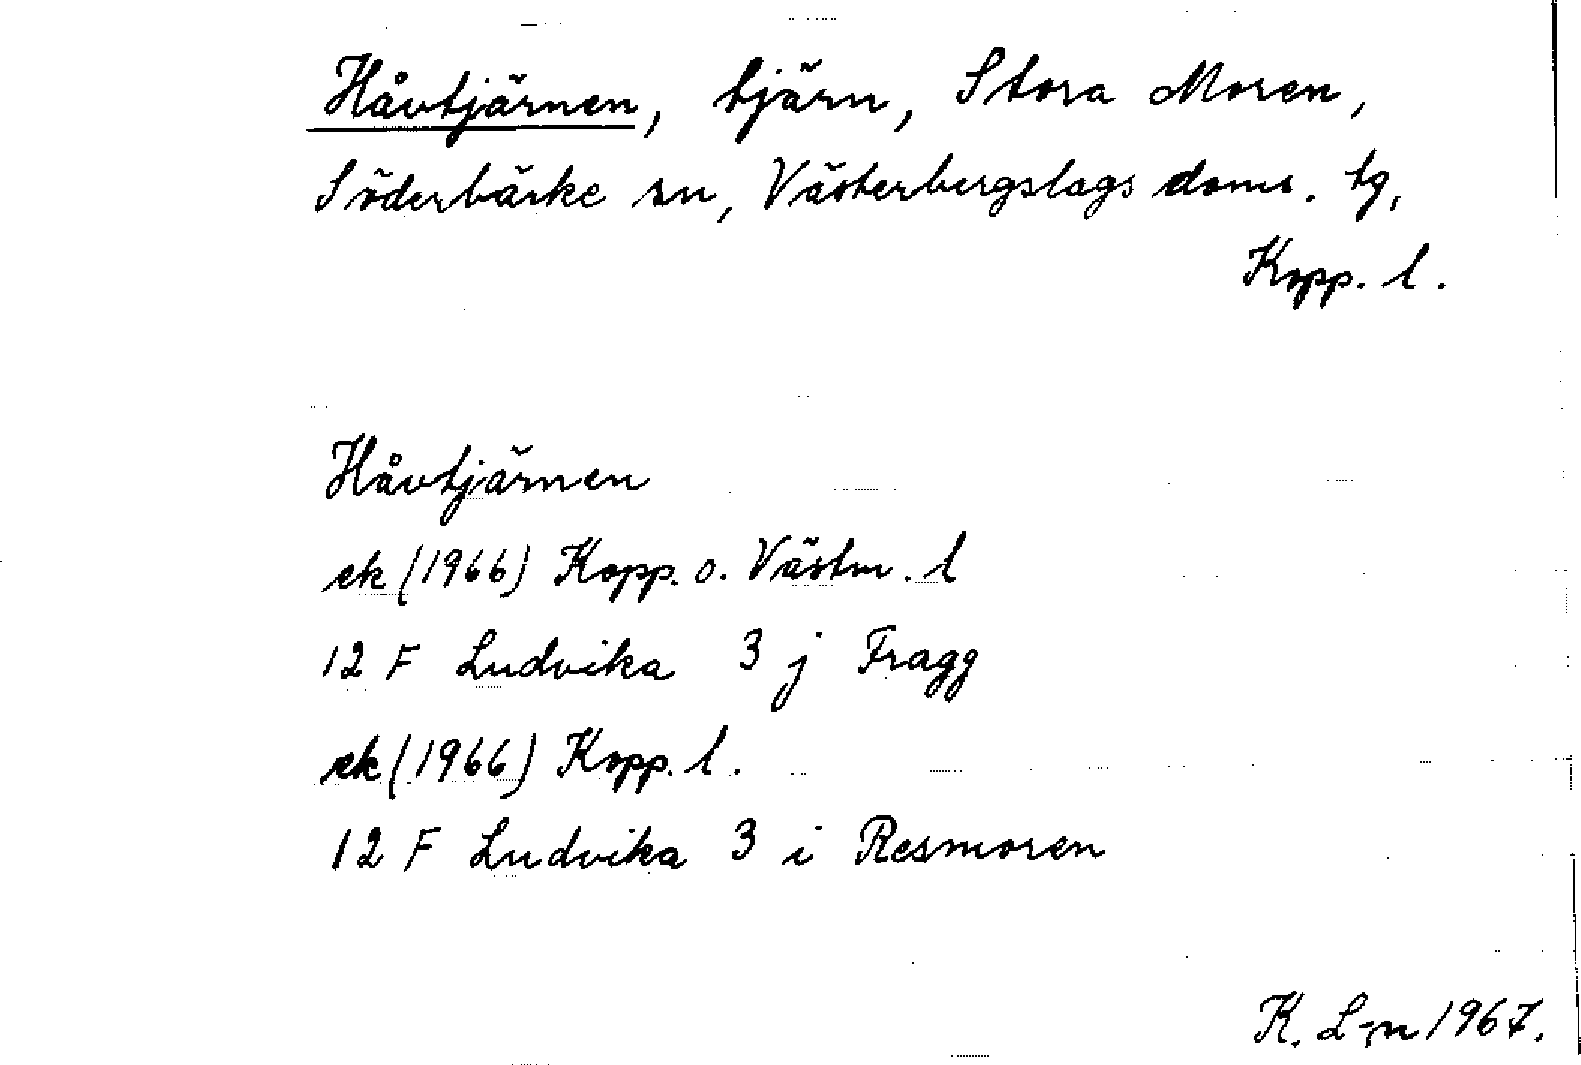 Håvtjärnen, tjärn, Stora Moren,
Söderbärke sn, Västerbergslags doms. tg,
Kopp. l.
Håvtjärnen
ek (1966) Kopp. o. Västm. l
12 F Ludvika 3 j Fragg
ek (1966) Kopp. l.
12 F Ludvika 3 i Resmoren
K. L:n 1967.